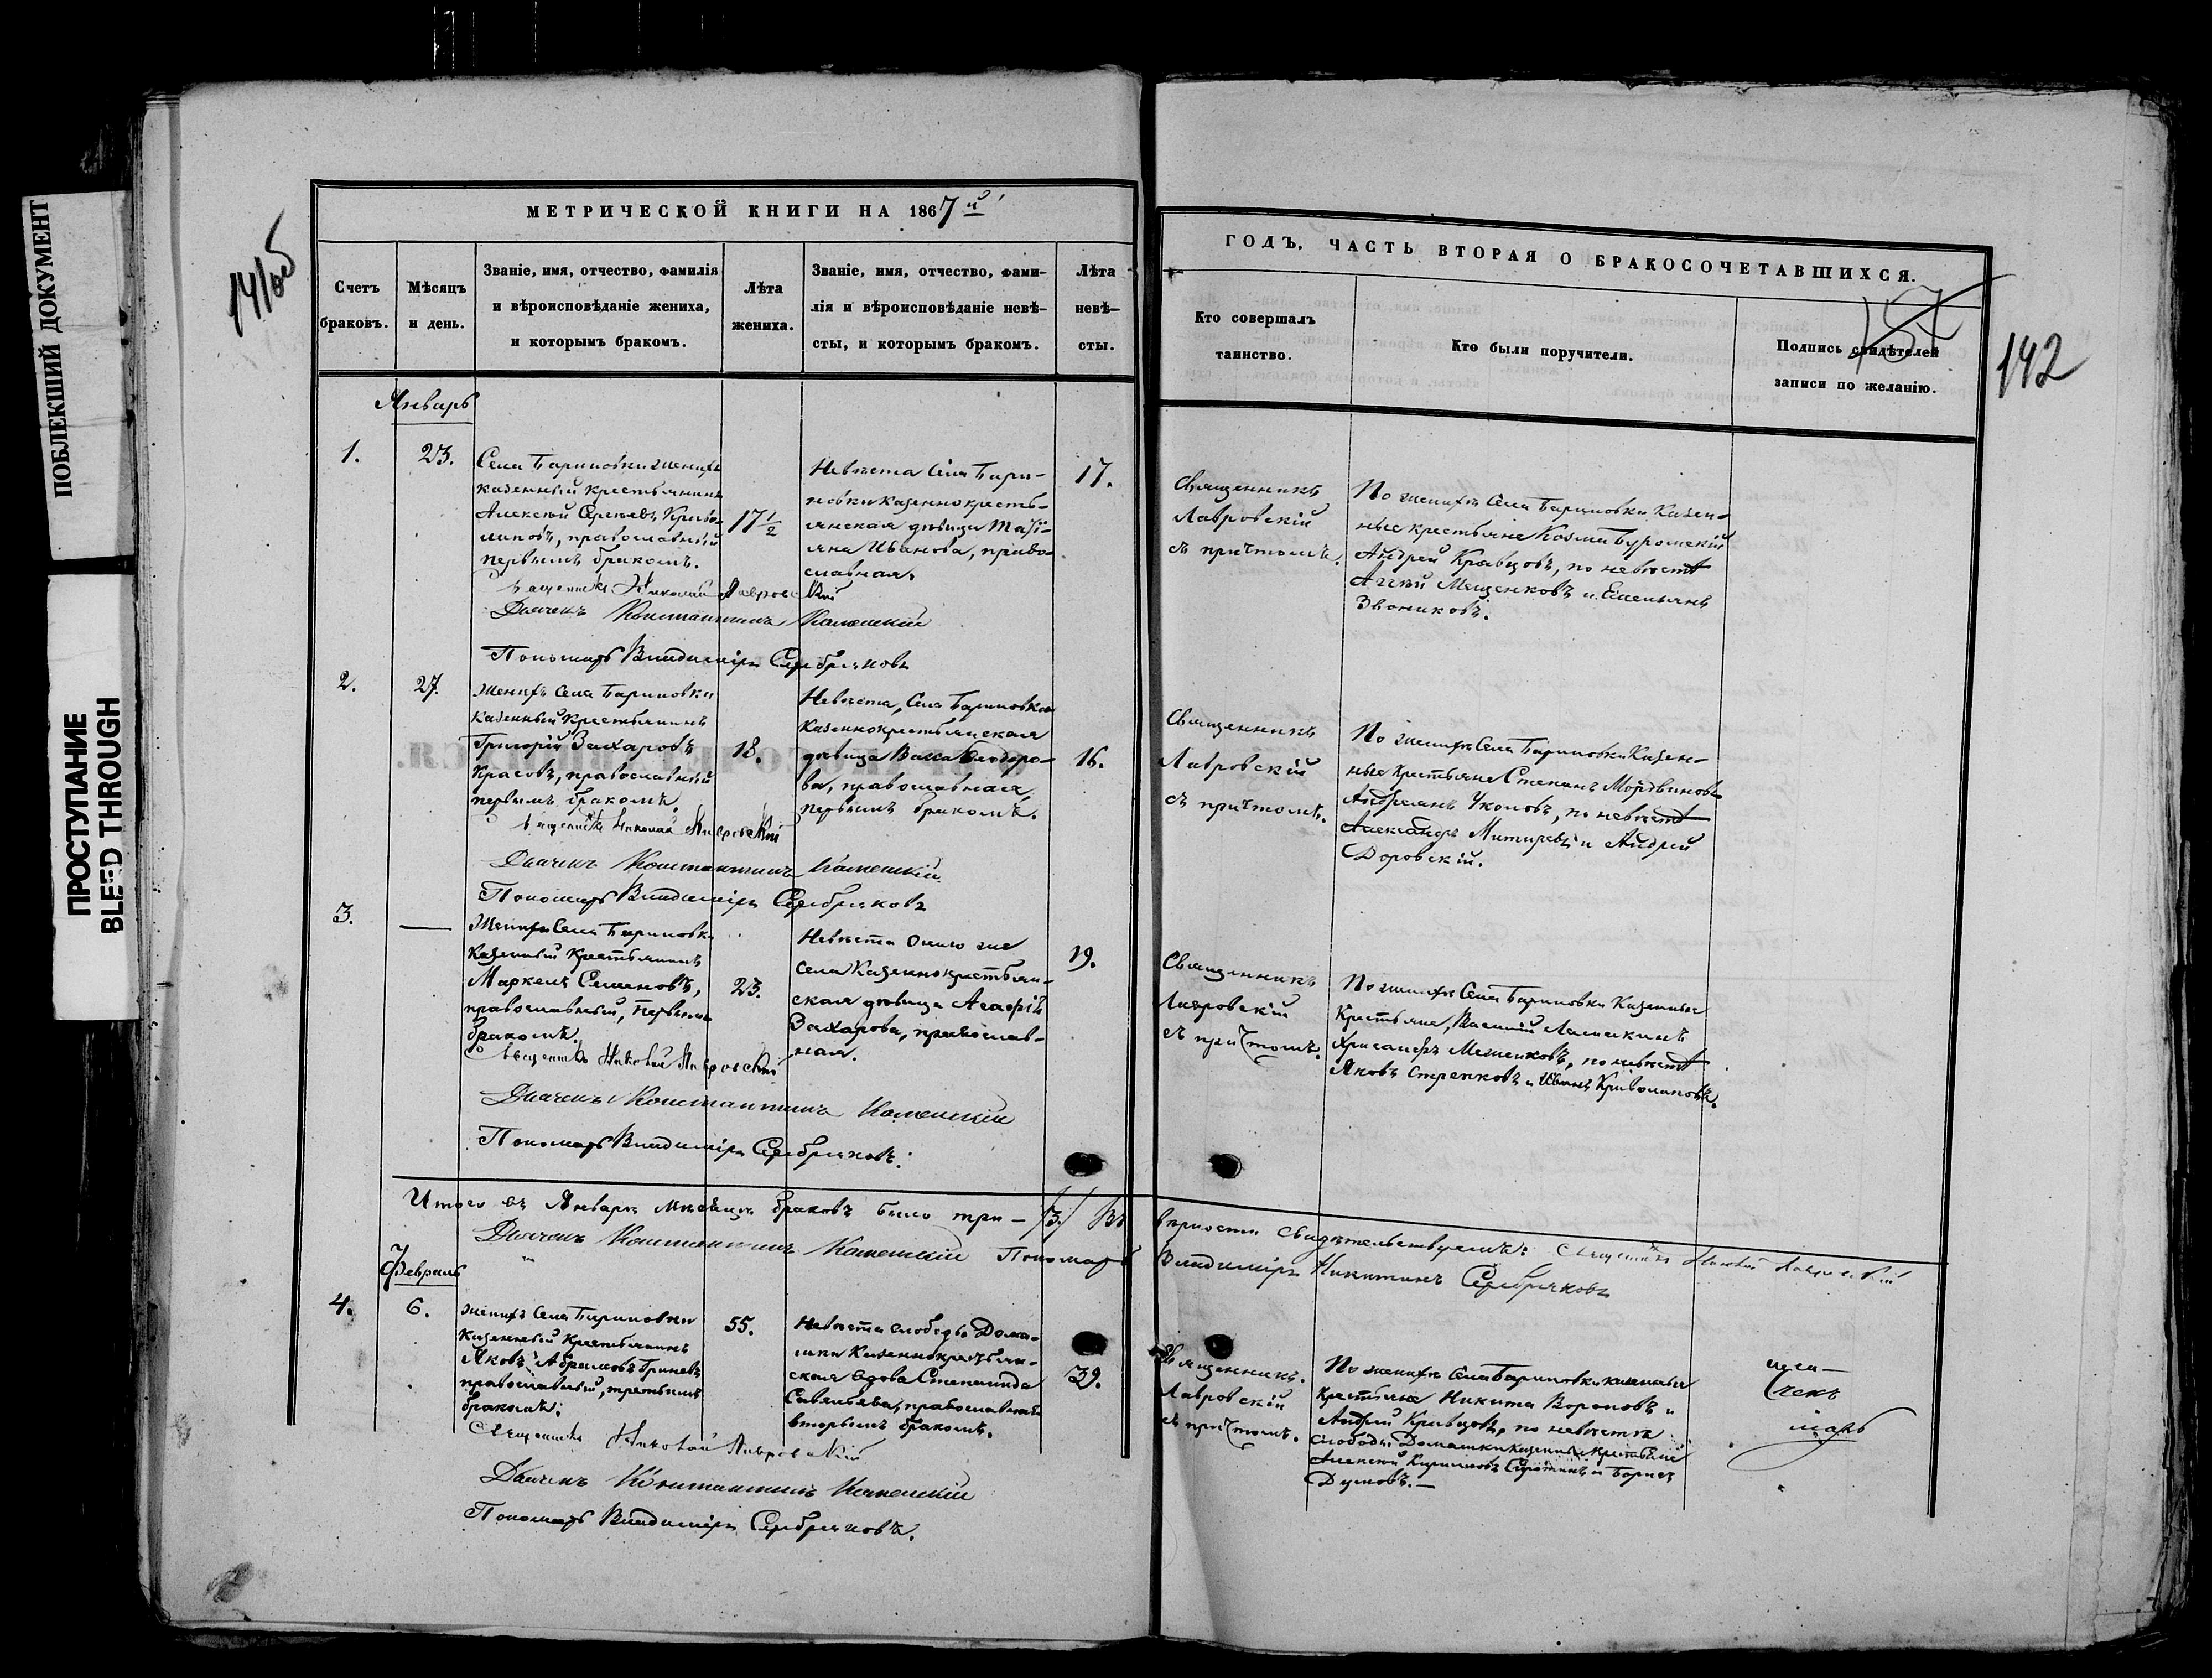 ПОБЛЕКШИЙ ДОКУМЕНТ
ПРОСТУПАНИЕ
BLEED THROUGH
141об
МЕТРИЧЕСКОЙ КНИГИ НА 1867й
Счетъ
браковъ.
Мѣсяцъ
и день.
Званіе, имя, отчество, фамилія
и вѣроисповѣданіе жениха,
и которымъ бракомъ.
Лѣта
жениха.
Званіе, имя, отчество, фами-
лія и вѣроисповѣданіе невѣ-
сты, и которымъ бракомъ.
Лѣта
невѣ-
сты.
Январь
1.
23.
Села Бариновки женихъ
казенный крестьянинъ
Алексѣй Сергѣевъ Криво-
лаповъ, православный
первымъ бракомъ.
17 1/2
Невѣста Села Бари-
новки казеннокресть-
янская дѣвица Таті-
яна Иванова, право-
славная.
17.
Священникъ Николай Лавровскій
Дьячекъ Константинъ Каменскій
Пономарь Владиміръ Серебряковъ
2.
27.
Женихъ Села Бариновки
казенный крестьянинъ
Григорій Захаровъ
Красовъ, православный
первымъ бракомъ.
18.
Невѣста, Села Бариновки
Казеннокрестьянская
дѣвица Васса Ѳеодоро-
ва, православная
первымъ бракомъ.
16.
Священникъ Николай Лавровскій
Дьячекъ Константинъ Каменскій
Пономарь Владиміръ Серебряковъ
3.
—
Женихъ Села Бариновки
Казенный Крестьянинъ
Маркелъ Семеновъ,
православный, первымъ
бракомъ.
23.
Невѣста онаго же
села Казеннокрестьян-
ская дѣвица Агафія
Захарова, православ-
ная.
19.
Священникъ Николай Лавровскій
Дьячекъ Константинъ Каменскій
Пономарь Владиміръ Серебряковъ.
Итого въ Январѣ мѣсяцѣ браковъ было три – /3/ Въ
Дьячекъ Константинъ Каменскій Пономарь
Февраль
4.
6.
женихъ Села Бариновки
Казенный Крестьянинъ
Яковъ Абрамовъ Гриневъ
православный, третьимъ
бракомъ.
55.
Невѣста слободы Дома-
шки Казеннокрестьян-
ская вдова Степанида
Савельева, православная
вторымъ бракомъ.
39.
Священникъ Николай Лавровскій
Дьячекъ Константинъ Каменскій
Пономарь Владиміръ Серебряковъ.
ГОДЪ, ЧАСТЬ ВТОРАЯ О БРАКОСОЧЕТАВШИХСЯ.
142
Кто совершалъ
таинство.
Кто были поручители.
Подпись свидѣтелей
записи по желанію.
Священникъ
Лавровскій
съ причтомъ.
По женихѣ Села Бариновки Казен-
ные крестьяне Козма
Андрей Кравцовъ, по невѣстѣ
Мещенковъ и Емельянъ
Звониковъ.
Священникъ
Лавровскій
съ причтомъ.
По женихѣ Села Бариновки Казен-
ные Крестьяне Степанъ Мордвиновъ
Андреянъ по невѣстѣ
Александръ и Андрей
Доровскій.
Священникъ
Лавровскій
съ причтомъ.
По женихѣ Села Бариновки Казенные
Крестьяне, Василій
Хрисанфъ по невѣстѣ
Яковъ Стрепковъ и Иванъ Криволаповъ.
вѣрности свидѣтельствуемъ: Священникъ Николай Лавровскій
Владиміръ Никитинъ Серебряковъ
Священникъ.
Лавровскій
съ причтомъ.
По женихѣ Села Бариновки казенные
Крестьяне Никита Вороновъ и
Андрей Кравцовъ, по невѣстѣ
слободы Домашки казенные крестьяне
Алексѣй Кириловъ Сиротинъ и Борисъ
Думовъ.—
чекъ
марь